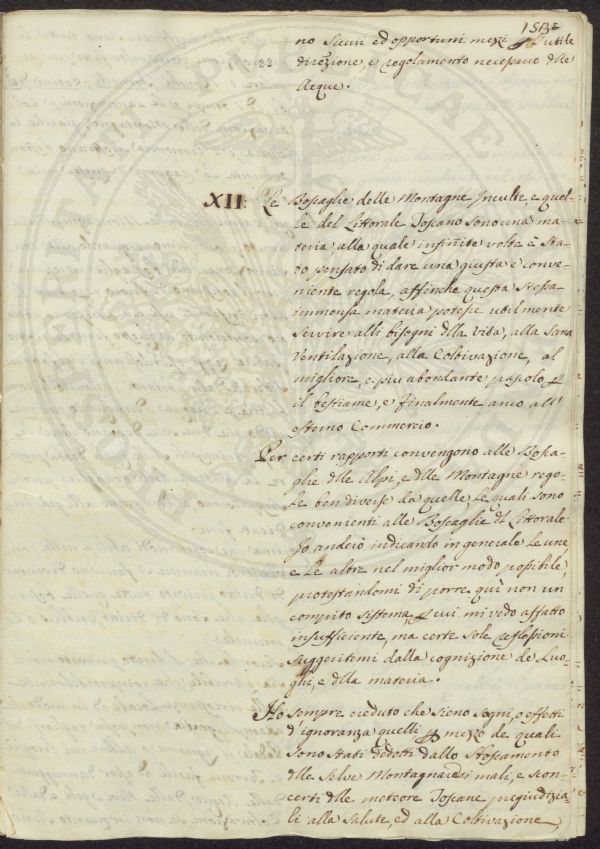 1513
no sicuri ed opportuni mezzi p l'utile
direzione e regolamento necessario dlle
Acque.
XII: Le Boscaglie delle Montagne Inculte, e quel-
le del Littorale Toscano sono una ma-
teria alla quale infinite volte è sta-
to pensato di dare una giusta e conve-
niente regola, affinche questa stessa
immensa materia potesse utilmente
servire alli bisogni dlla vita, alla sana
ventilazione, alla Coltivazione, al
migliore, e piu abondante pascolo p
il bestiame, e finalmente anco all'
esterno Commercio.
Per certi rapporti convengono alle Bosca-
glie dlle Alpi, e dlle Montagne rego-
le ben diverse da quelle le quali sono
convenienti alle Boscaglie dl Littorale
Io anderò indicando in generale le une
e le altre nel miglior modo possibile,
protestandomi di porre quì non un
compito sistema, p cui mi vedo affatto
insufficiente, ma certe sole reflessioni
suggeritemi dalla cognizione de Luo-
ghi, e dlla materia.
Ho sempre creduto che sieno sogni, o effetti
d'ignoranza quelli p mezzo de quali
sono stati dedotti dallo sboscamento
dlle Selve Montagnaie i mali, e scon-
certi dlle meteore Toscane pregiudizia-
li alla salute, ed alla Coltivazione,